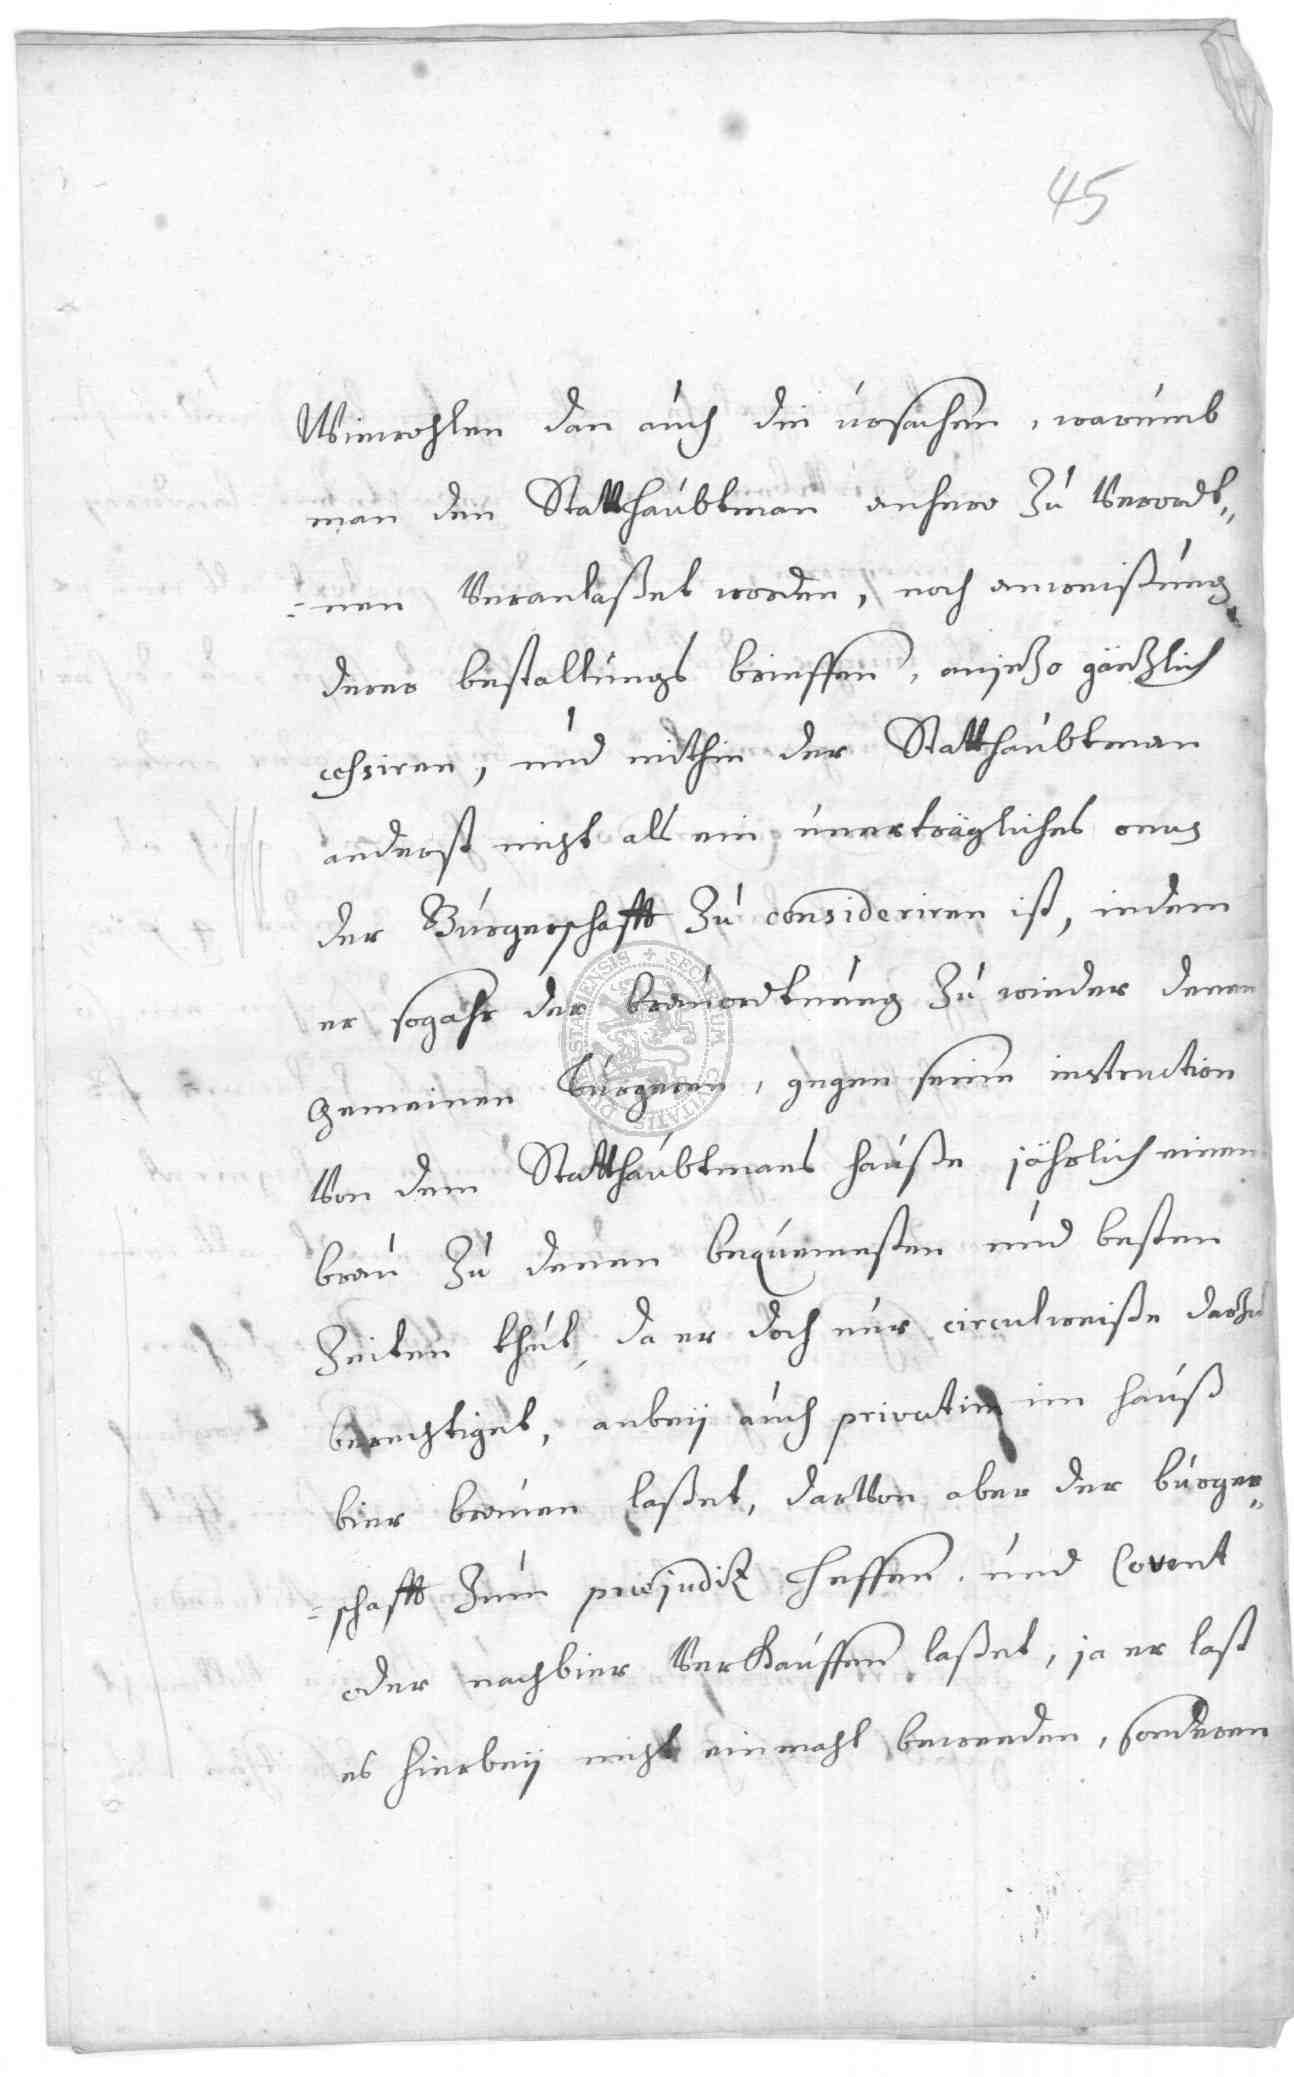 45
Wiewohlen dan auch die ursachen, warumb
man den Statthaubtman anhero zu Verordt„
=nen Veranlaßet worden, nach anweißung
derer bestallungs brieffen, anjetzo gäntzlich
cessiren, und mithin der Statthaubtman
anderst nicht als ein unerträgliches onus
der Bürgerschafft zu consideriren ist, indem
er sogahr der brauordtnung zu wieder denen
gemeinen bürgeren, gegen seine instruction
Von dem Statthaubtmans hauße jährlich einen
brau zu denen bequemesten und besten
Zeiten thut, da er doch nur circulweiße darzu
berechtiget, anbeÿ auch privatim im hauß
bier brauen laßet, darVon aber der bürger„
=schafft zum præjuditz heffen und Covent
oder nachbier Verkauffen laßet, ja er last
es hierbeÿ nicht einmahl bewenden, sonderen
SECRETUM CIVITATIS